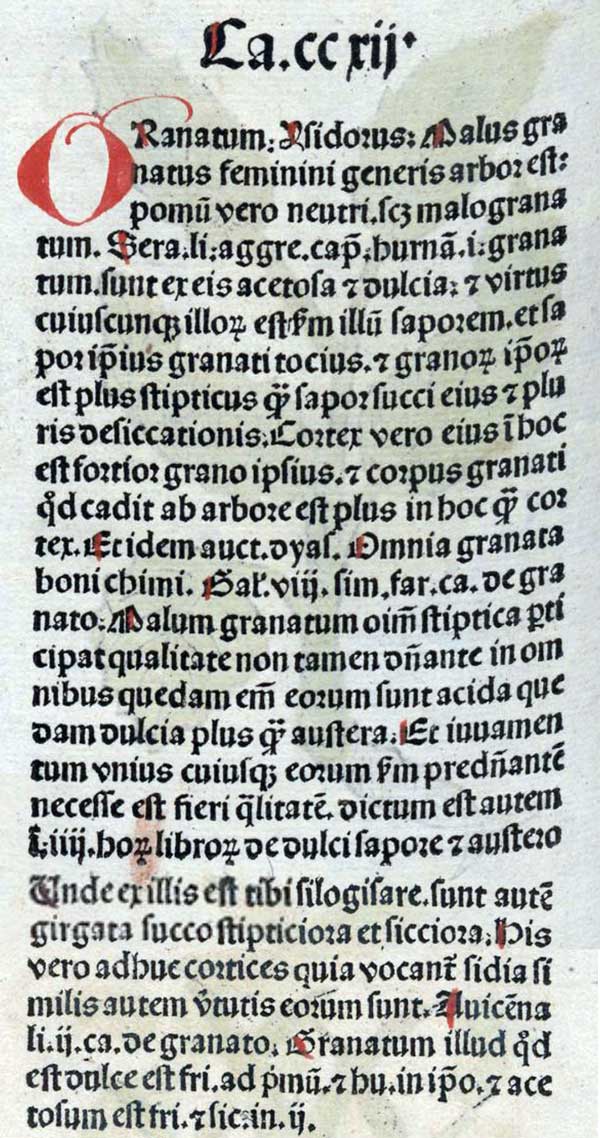 Ca.ccxij.
GRanatum: Ysidorus: Malus gra
natus feminini generis arbor est:
pomū vero neutri.scꝫ malograna
tum. Sera.li:aggre.cap̄.burnā.i:grana
tum.sunt ex eis acetosa ⁊ dulcia: ⁊ virtus
cuiuscunqꝫ illoꝝ est ẜm illū saporem.et sa
por ip̄ius granati tocius.⁊ granoꝝ ip̄oꝝ
est plus stipticus ꝙ̄ sapor succi eius ⁊ plu
ris desiccationis.Cortex vero eius ī hoc
est fortior grano ipsius.⁊ corpus granati
qd̓ cadit ab arbore est plus in hoc ꝙ̄ cor
tex. Et idem auct.dyas. Omnia granata
boni chimi. Gal̓.viij. sim.far.ca. de gra
nato. Malum granatum oim̄ stiptica ꝑti
cipat qualitate non tamen dn̄ante in om
nibus quedam em̄ eorum sunt acida que
dam dulcia plus ꝙ̄ austera. Et iuuamen
tum vnius cuiusqꝫ eorum ẜm predn̄antē
necesse est fieri q̄litatē. dictum est autem
l.iiij.hoꝝ libroꝝ de dulci sapore ⁊ austero
Unde ex illis est tibi silogisare.sunt autē
girgata succo stipticiora et sicciora. His
vero adhuc cortices quia vocant̄ sidia si
milis autem v̓tutis eorum sunt. Auicēna
li.ij.ca.de granato. Granatum illud qd̓
est dulce est fri.ad p̓mū.⁊ hu.in ip̄o.⁊ ace
tosum est fri.⁊ sic.in.ij.